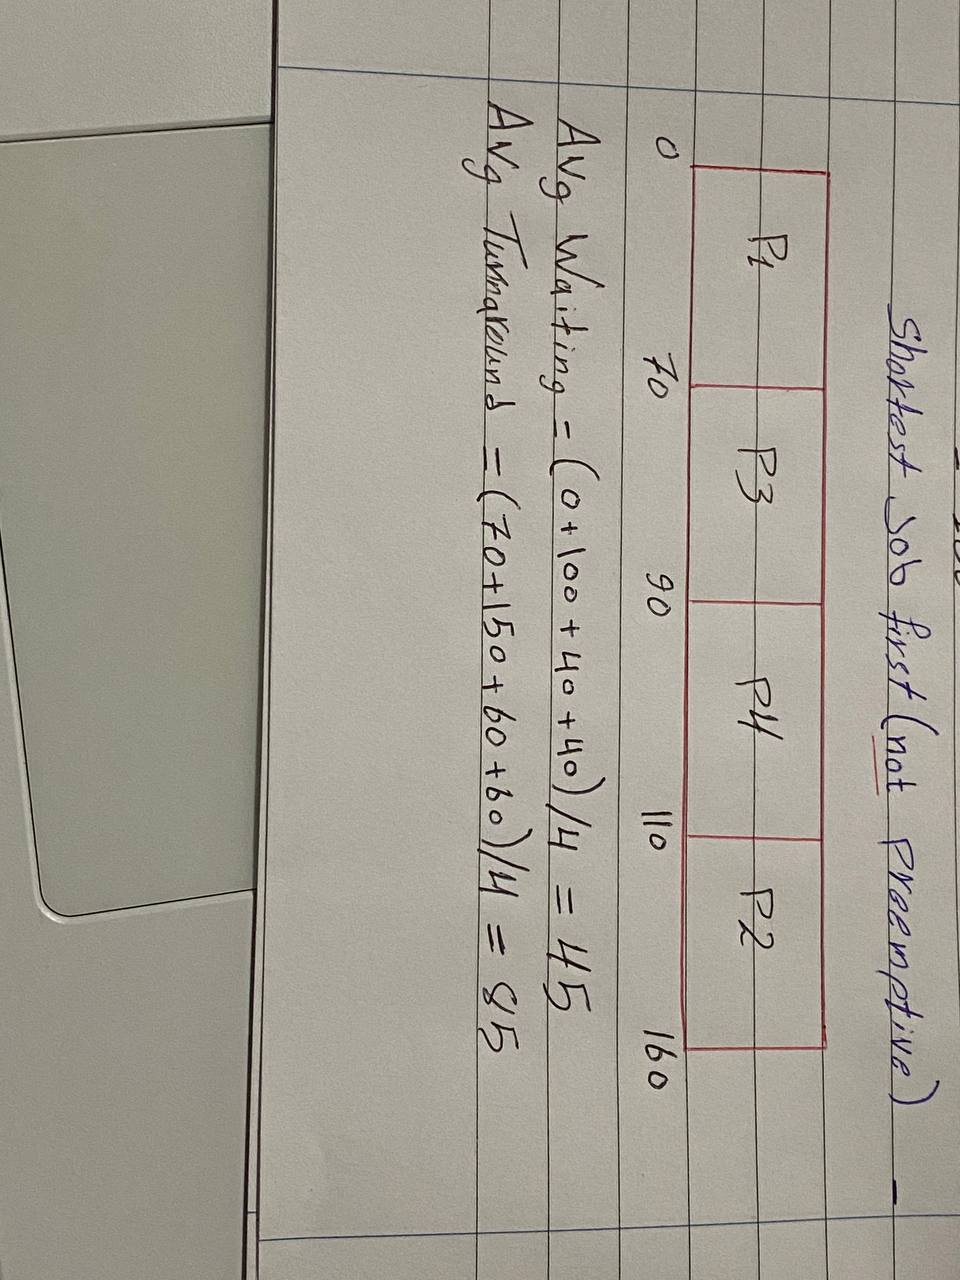 Shortest Job first (not preemptive)
P1 P3 P4 P2
0 70 90 110 160
Avg Waiting = (0+100+40+40)/4 = 45
Avg Turnaround = (70+150+60+60)/4 = 85